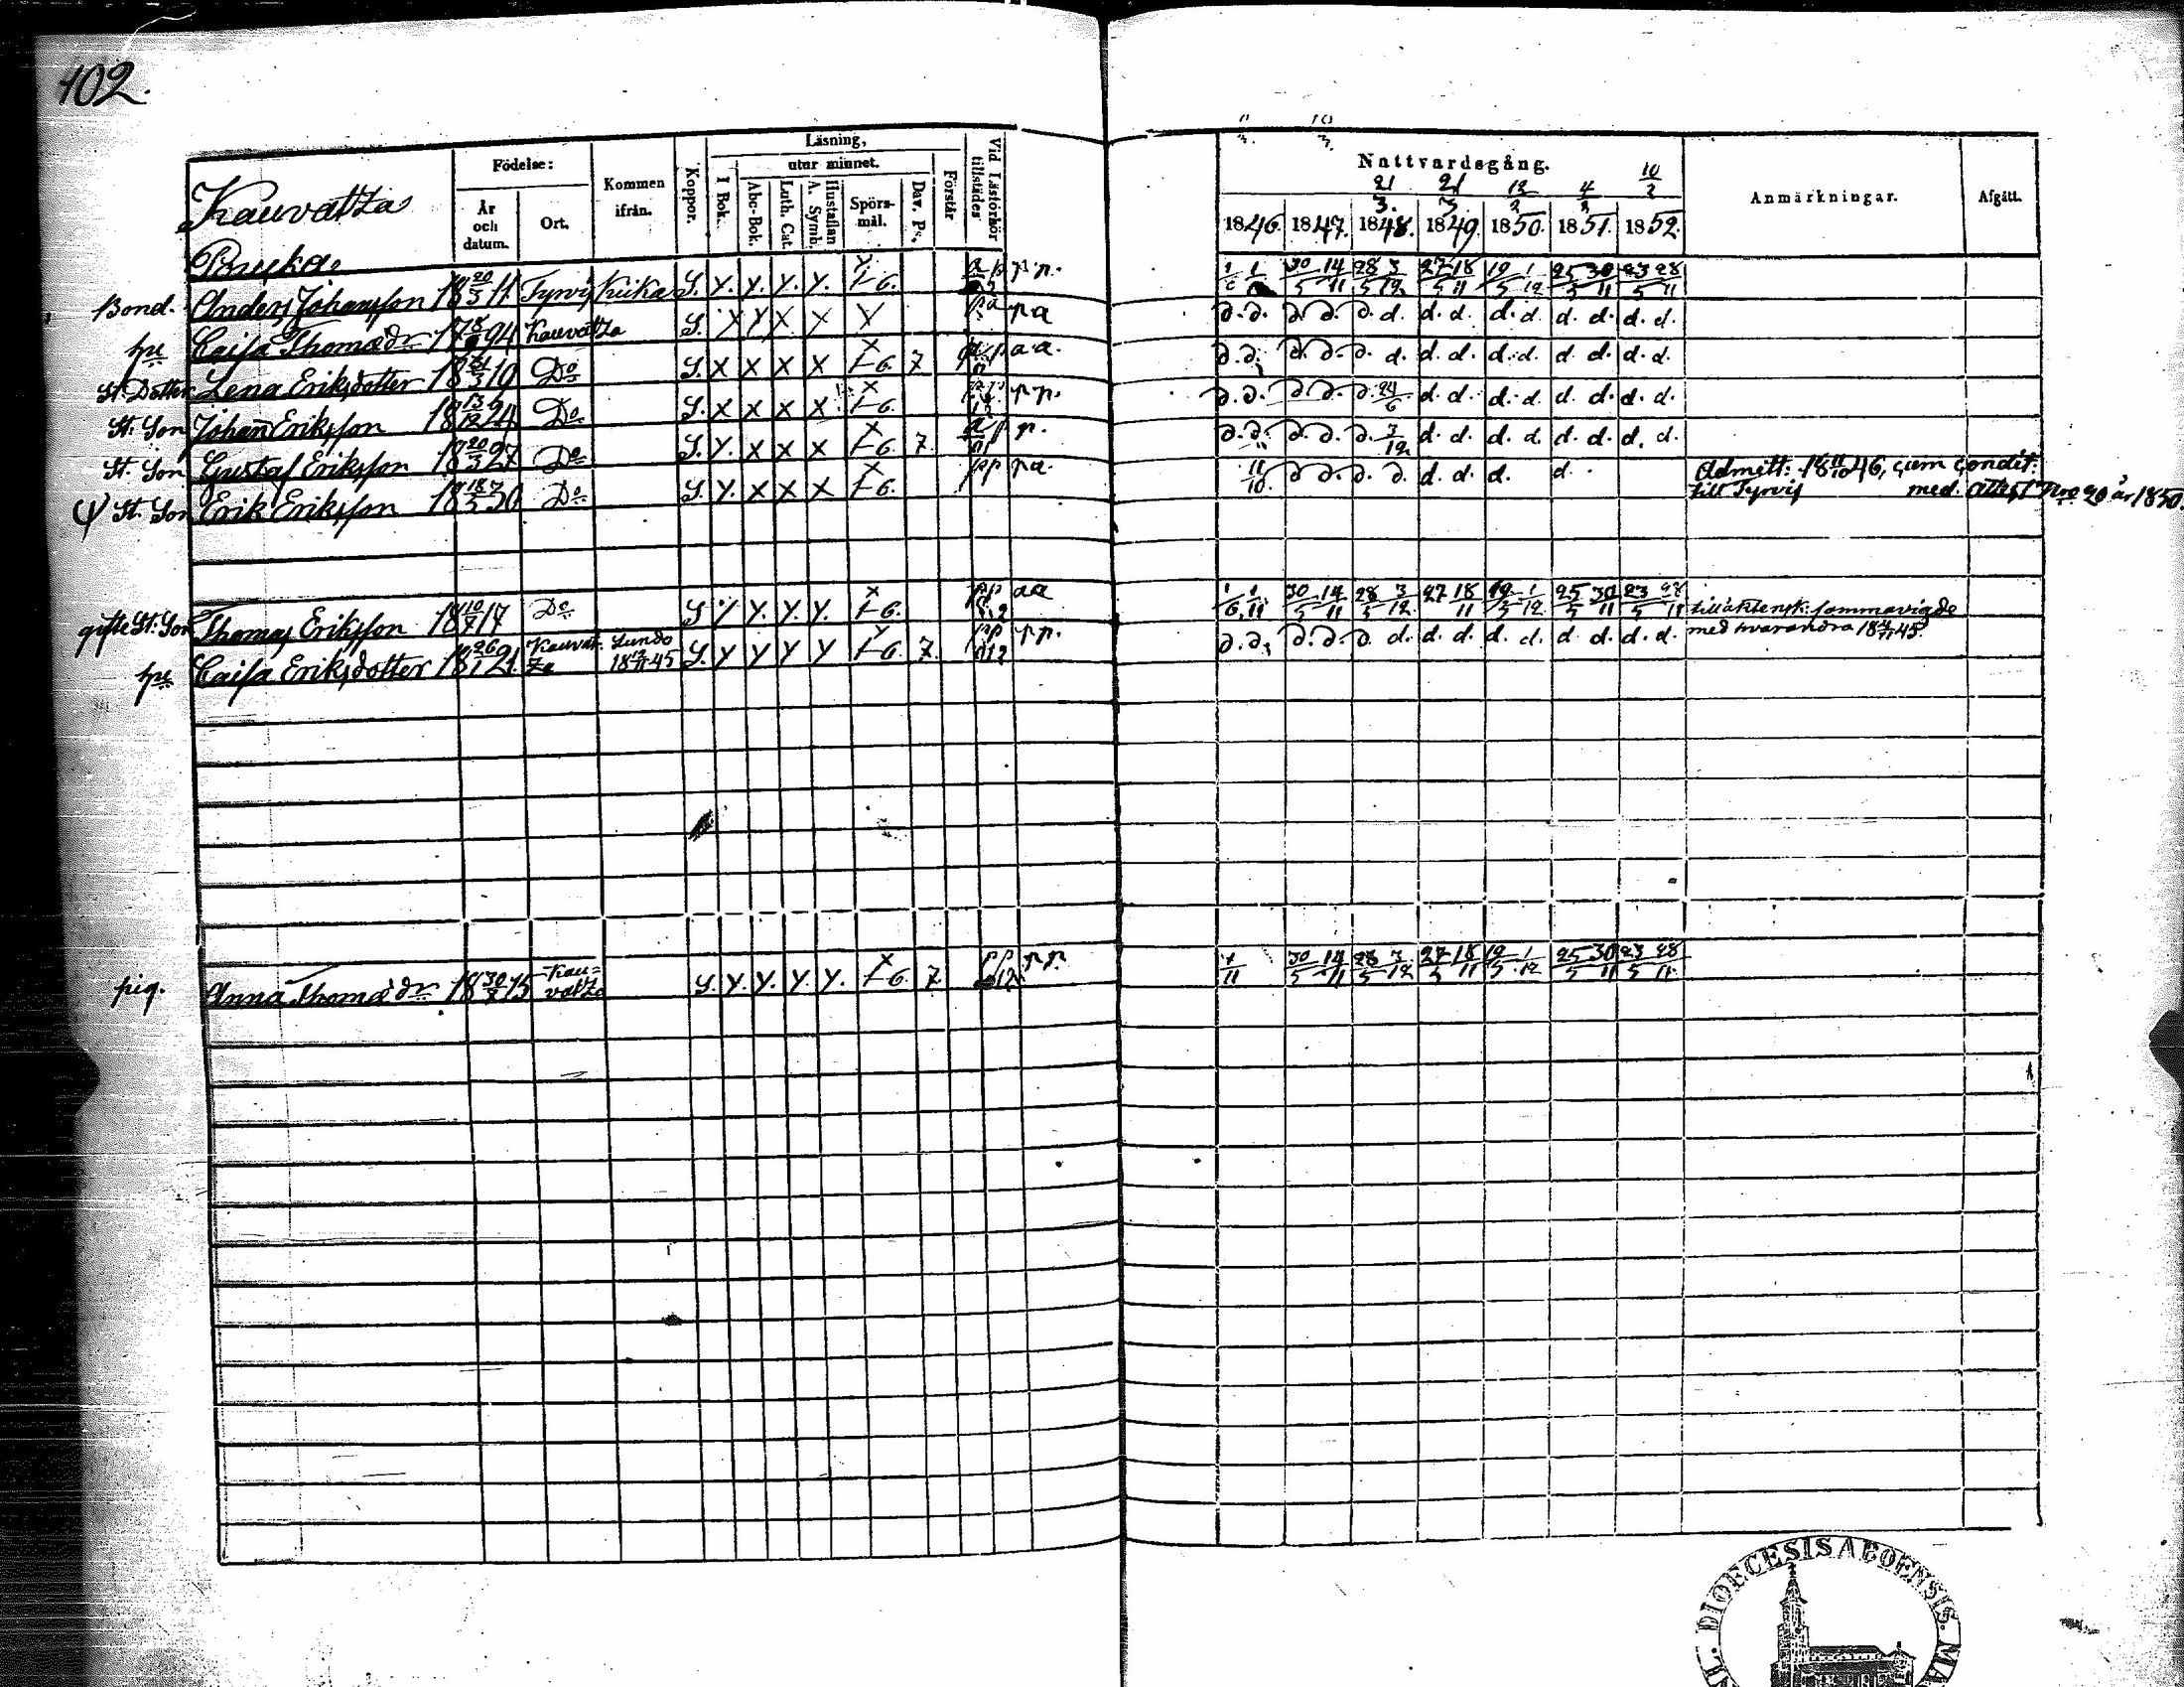 102.
Kauvatza
Födelse:
År och datum.
Ort.
Kommen ifrån.
Koppor.
Läsning,
utur minnet.
I Bok.
Abc-Bok.
Luth. Cat.
Hustaflan A. Symb.
Spörsmål.
Dav. Ps.
Förstår
Vid Läsförhör tillstädes
Nattvardsgång.
21/3. 21/3. 12/2 4/3 10/2
1846. 1847. 1848. 1849. 1850. 1851. 1852.
Anmärkningar.
Afgått.
Bond. Anders Johansson 18 20/3 11. Tyrvis S. y. y. y. y. 1-6. p.p. 30/5 14/11 28/5 3/12 27/5 18/11 19/5 1/12 25/5 30/11 23/5 28/11
hu Caisa Thomædr 94 Kauvatza S. x y x x y p a d. d. d. d. d. d. d. d. d. d. d. d. d. d.
St. Dotter Lena Eriksdotter Do S. x x x x x 1-6. 7 a a. d. d. d. d. d. d. d. d. d. d. d. d. d. d.
St. Son Johan Eriksson 18 13/12 24 Do S. x x x x x 1-6. p.p. d. d. d. d. d. 24/6 d. d. d. d. d. d. d. d.
St. Son Gustaf Eriksson 18 20/3 27 Do S. y. x x x x 1-6 7. p. d. d. d. d. d. 3/12 d. d. d. d. d. d. d. d.
St. Son Erik Eriksson 18 18/3 30 Do S. y. x x x x 1-6. pp p a. 11/10. d d. d. d. d. d. d. d. Admitt: 18 11/10 46, cum condit:
till Tyrvis med attest Nro 20 år 1850.
gifte St. Son Thomas Eriksson 18 10/7 17 Do S y y. y. y. x 1-6. pp a a 1/6 1/11 30/5 14/11 28/5 3/12 27 18/11 19/5 1/12 25/5 30/11 23/5 28/11 till äktensk: sammavigde
med hvarandra 45.
hu Caisa Eriksdotter 18 26/1 21. Kauvatza Lundo 45 S. y y y y y 1-6 7. pp p.p. d. d. d. d. d. d. d. d. d. d. d. d. d. d.
pig. Anna Thomædr 18 15 Kauvatza S. y. y. y. y. x 1-6. 7. p.p. 1/11 30/5 14/11 28/5 3/12 27/5 18/11 19/5 1/12 25/5 30/11 23/5 28/11
DIOECESIS ABOENSIS. MA